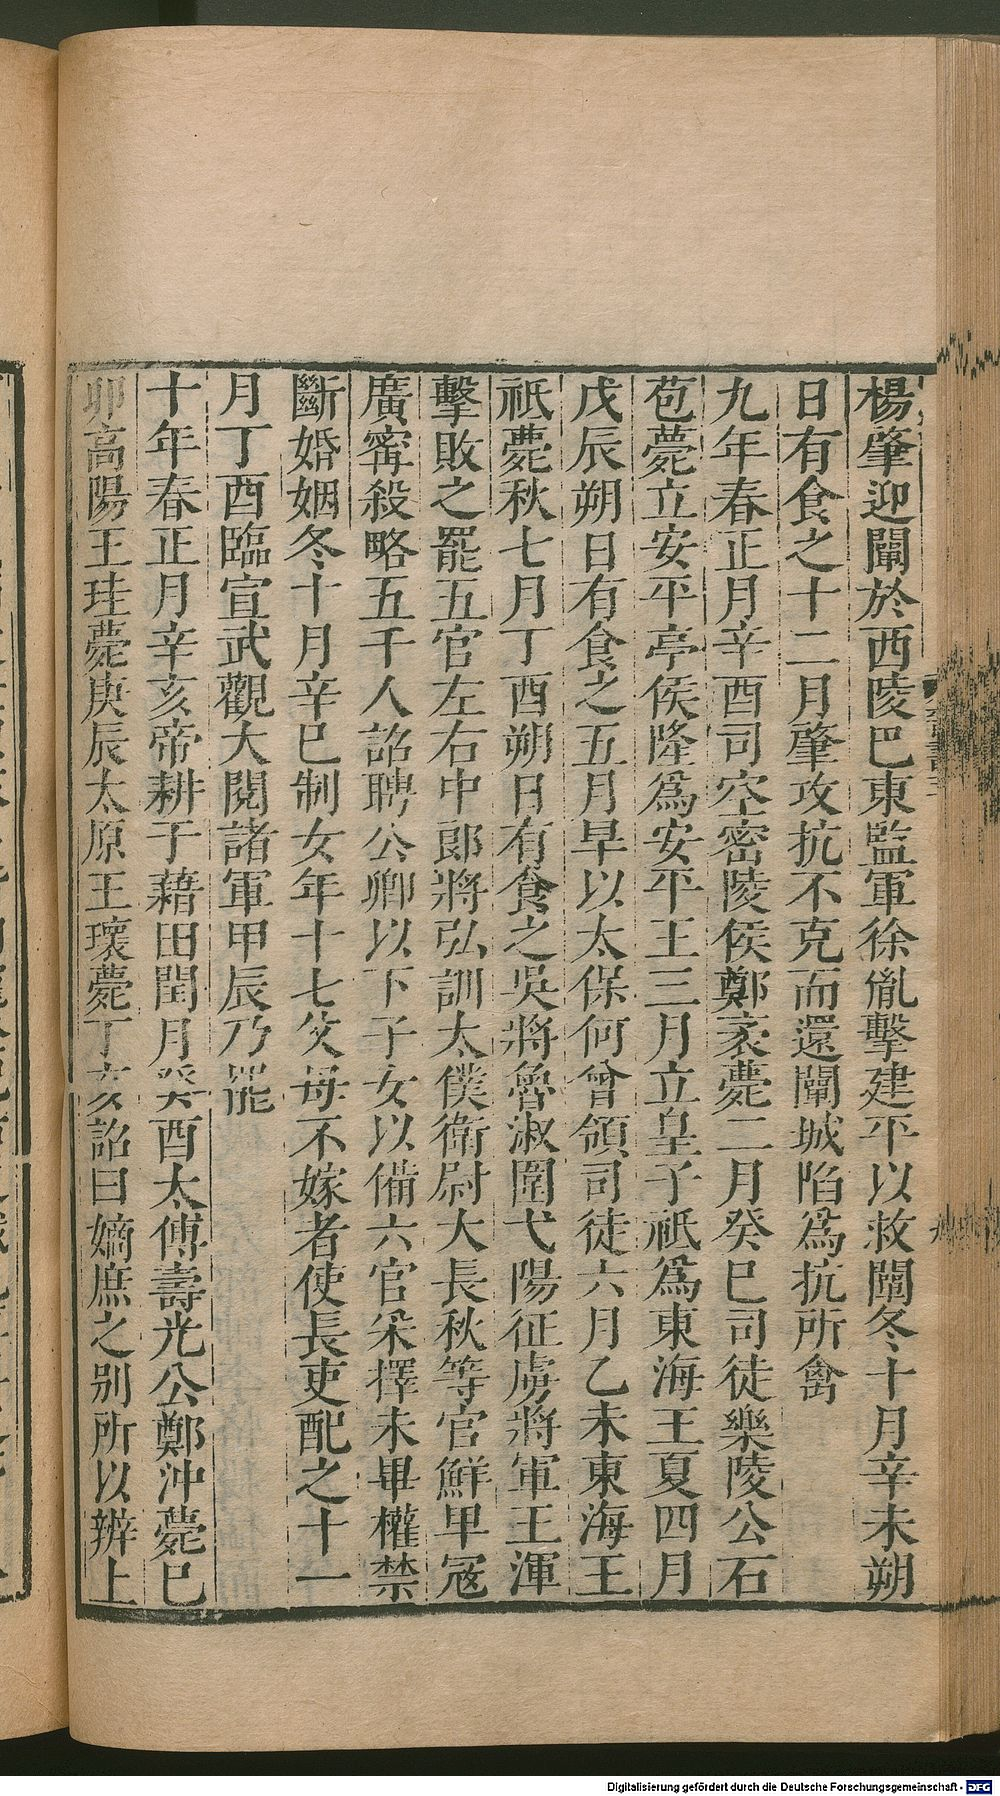 楊肇迎闡於西陵巴東監軍徐胤擊建平以救闡冬十月辛未朔
日有食之十二月肇攻抗不克而還闡城陷爲抗所禽
九年春正月辛酉司空密陵侯鄭袤薨二月癸巳司徒樂陵公石
苞薨立安平亭侯隆爲安平王三月立皇子祇爲東海王夏四月
戊辰朔日有食之五月旱以太保何曾領司徒六月乙未東海王
祇薨秋七月丁酉朔日有食之吳將魯淑圍弋陽征虜將軍王渾
擊敗之罷五官左右中郎將弘訓太僕衛尉大長秋等官鮮卑寇
廣甯殺略五千人詔聘公卿以下子女以備六官采擇未畢權禁
斷婚姻冬十月辛巳制女年十七父母不嫁者使長吏配之十一
月丁酉臨宣武觀大閱諸軍甲辰乃罷
十年春正月辛亥帝耕于藉田閏月癸酉太傅壽光公鄭沖薨巳
卯高陽王珪薨庚辰太原王瓌薨丁亥詔曰嫡庶之別所以辨上
Digitalisierung gefördert durch die Deutsche Forschungsgemeinschaft - DFG